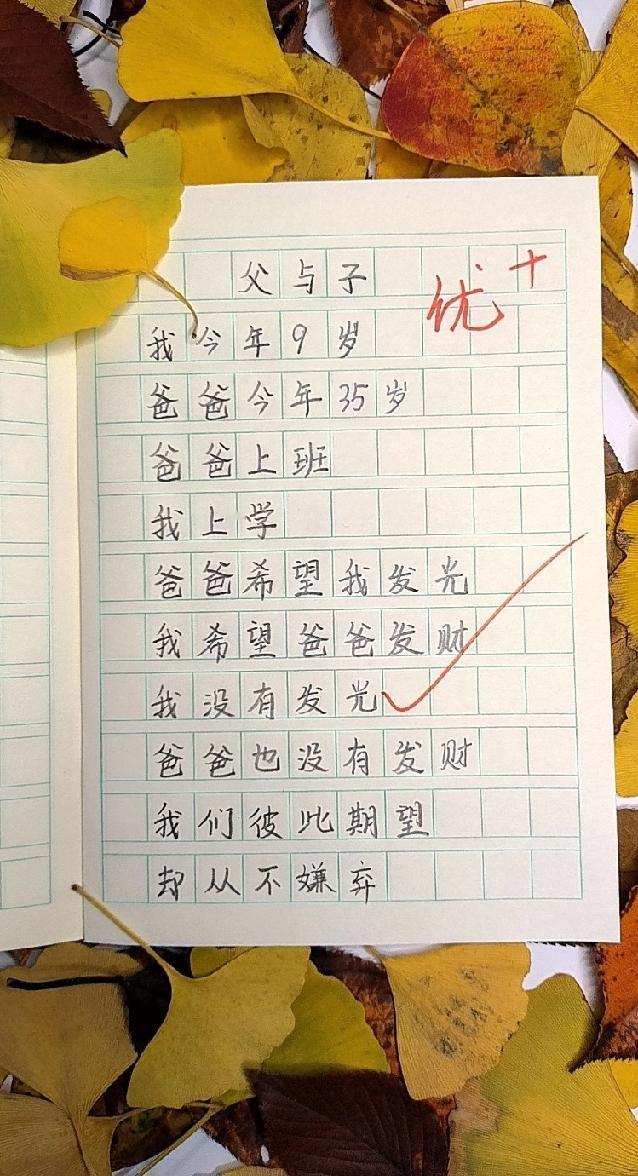 父与子
优+
我今年9岁
爸爸今年35岁
爸爸上班
我上学
爸爸希望我发光
我希望爸爸发财
我没有发光
爸爸也没有发财
我们彼此期望
却从不嫌弃